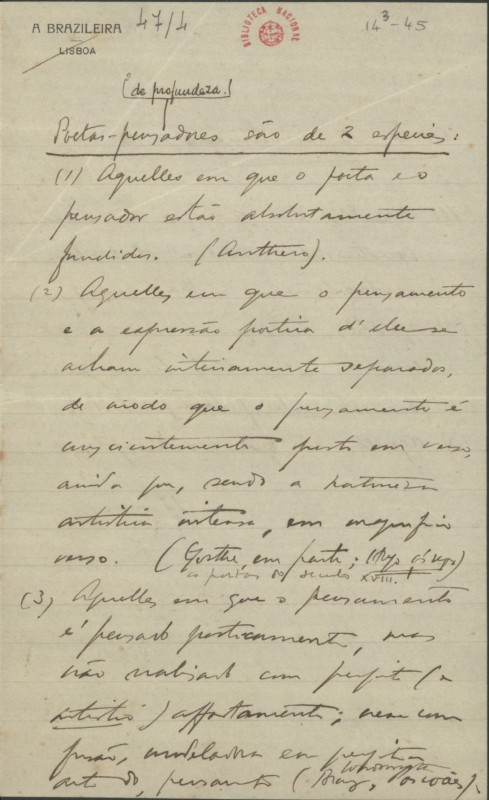 A BRAZILEIRA
LISBOA
47/4
BIBLIOTECA NACIONAL
14³-45
(de profundeza.)
Poetas-pensadores são de 2 especies:
(1) Aquelles em que o poeta e o
pensador estão absolutamente
fundidos. (Anthero).
(2) Aquelles em que o pensamento
e a expressão poetica d'elle se
acham inteiramente separados,
de modo que o pensamento é
conscientemente posto em verso,
ainda que, sendo a natureza
artistica intensa, em magnifico
verso. (Goethe em parte;
os poetas do seculo XVIII.)
(3) Aquelles em que o pensamento
é pensado poeticamente, mas
não realisado com perfeito (e
artistico) affastamento; nem com
fusão, modeladora em perfeita